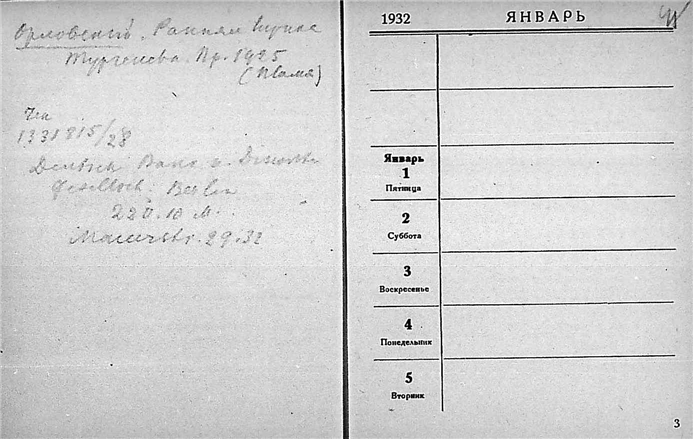 Орловский. Ранняя
Тургенева. Пр. 1925
(Пламя)
1331815/28
Deutsch Bank u. Disconto
Gesellsch. Berlin
220.10 M.
Mauerstr. 29-32
1932
ЯНВАРЬ
Январь
1
Пятница
2
Суббота
3
Воскресенье
4
Понедельник
5
Вторник
3